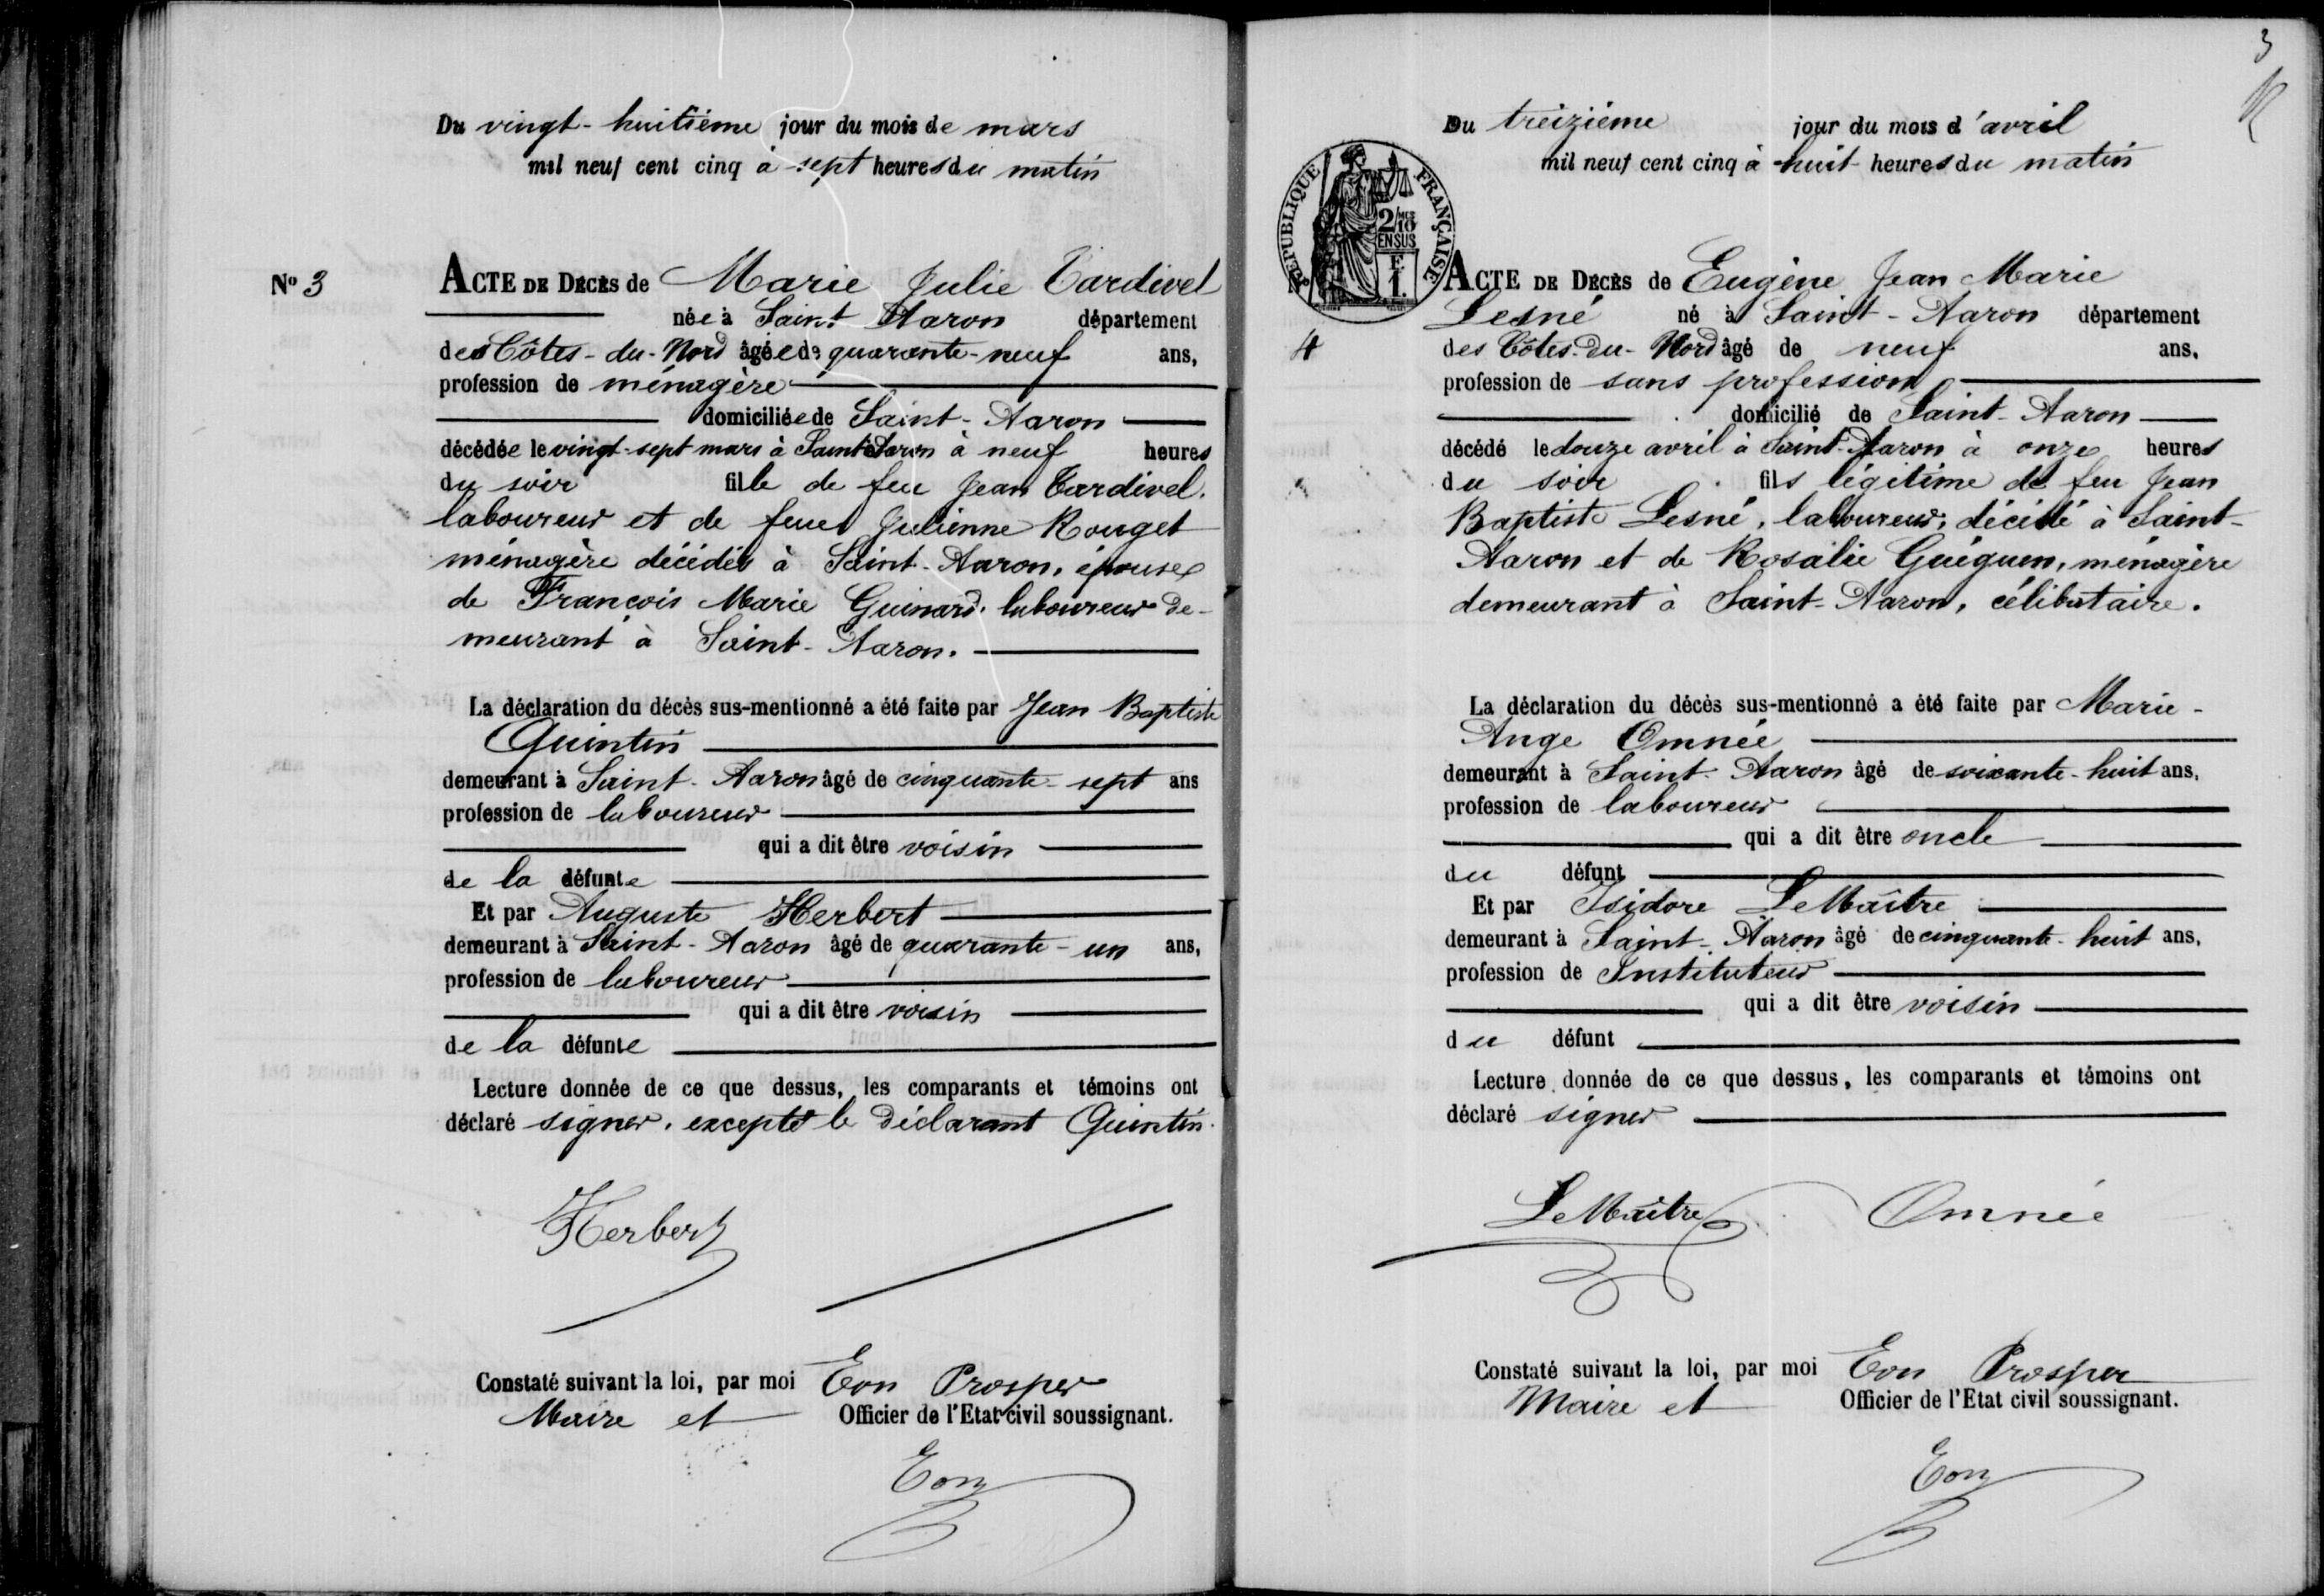 Du vingt-huitième jour du mois de mars
mil neuf cent cinq à sept heures du matin
No 3
ACTE DE DÉCÈS de Marie Julie Tardivel
née à Saint Aaron département
des Côtes-du-Nord âgée de quarante-neuf ans,
profession de ménagère
domiciliée de Saint-Aaron
décédée le vingt-sept mars à Saint-Aaron à neuf heures
du soir fille de feu Jean Tardivel,
laboureur et de feue Julienne Rouget
ménagère décédés à Saint-Aaron, épouse
de François Marie Guinard, laboureur de-
meurant à Saint-Aaron.
La déclaration du décès sus-mentionné a été faite par Jean Baptiste
Quintin
demeurant à Saint-Aaron âgé de cinquante-sept ans
profession de laboureur
qui a dit être voisin
de la défunte
Et par Auguste Herbert
demeurant à Saint-Aaron âgé de quarante-un ans,
profession de laboureur
qui a dit être voisin
de la défunte
Lecture donnée de ce que dessus, les comparants et témoins ont
déclaré signer, excepté le déclarant Quintin.
Herbert
Constaté suivant la loi, par moi Eon Prosper
Maire et Officier de l'Etat civil soussignant.
Eon
3
Du treizième jour du mois d'avril
mil neuf cent cinq à huit heures du matin
RÉPUBLIQUE FRANÇAISE
2/10
EN SUS
F.
1.
4
ACTE DE DÉCÈS de Eugène Jean Marie
Lesné né à Saint-Aaron département
des Côtes-du-Nord âgé de neuf ans,
profession de sans profession
domicilié de Saint-Aaron
décédé le douze avril à Saint-Aaron à onze heures
du soir fils légitime de feu Jean
Baptiste Lesné, laboureur, décédé à Saint-
Aaron et de Rosalie Guéguen, ménagère
demeurant à Saint-Aaron, célibataire.
La déclaration du décès sus-mentionné a été faite par Marie-
Ange Omnée
demeurant à Saint-Aaron âgé de soixante-huit ans,
profession de laboureur
qui a dit être oncle
du défunt
Et par Isidore Le Maître
demeurant à Saint-Aaron âgé de cinquante-huit ans,
profession de Instituteur
qui a dit être voisin
du défunt
Lecture donnée de ce que dessus, les comparants et témoins ont
déclaré signer
Le Maître Omnée
Constaté suivant la loi, par moi Eon Prosper
Maire et Officier de l'Etat civil soussignant.
Eon